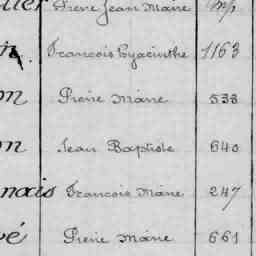 Pierre Jean Marie
François Hyacinthe 1163
on Pierre Marie 538
on Jean Baptiste 640
nais François Marie 247
vé Pierre Marie 661